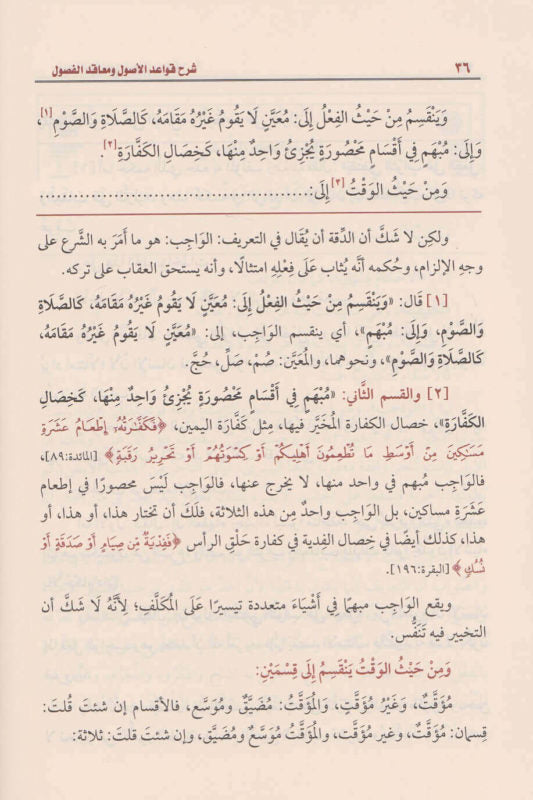 ٣٦ شرح قواعد الأصول ومعاقد الفصول
وَيَنْقَسِمُ مِنْ حَيْثُ الفِعْلُ إِلَى: مُعَيَّنٍ لَا يَقُومُ غَيْرُهُ مَقَامَهُ، كَالصَّلَاةِ وَالصَّوْمِ[١]،
وَإِلَى: مُبْهَمٍ فِي أَقْسَامٍ مَحْصُورَةٍ يُجْزِئُ وَاحِدٌ مِنْهَا، كَخِصَالِ الكَفَّارَةِ[٢].
وَمِنْ حَيْثُ الوَقْتُ[٣] إِلَى:........................................
ولكِن لا شَكَّ أن الدِّقة أن يُقال في التعريف: الوَاجِب: هو ما أَمَرَ به الشَّرع على
وجهِ الإلزام، وحُكمه أنَّه يُثاب عَلَى فِعْلِهِ امتثالًا، وأنه يستحق العقاب على تركه.
[١] قَال: «وَيَنْقَسِمُ مِنْ حَيْثُ الفِعْلُ إِلَى: مُعَيَّنٍ لَا يَقُومُ غَيْرُهُ مَقَامَهُ، كَالصَّلَاةِ
وَالصَّوْمِ، وَإِلَى: مُبْهَمٍ»، أي ينقسم الوَاجِب، إلى: «مُعَيَّنٍ لَا يَقُومُ غَيْرُهُ مَقَامَهُ،
كَالصَّلَاةِ وَالصَّوْمِ»، ونحوهما، والمُعَيَّن: صُمْ، صَلِّ، حُجَّ.
[٢] والقسم الثَّاني: «مُبْهَمٍ فِي أَقْسَامٍ مَحْصُورَةٍ يُجْزِئُ وَاحِدٌ مِنْهَا، كَخِصَالِ
الكَفَّارَةِ»، خصال الكفارة المُخَيَّر فيها، مِثل كَفَّارَة اليمين، ﴿فَكَفَّٰرَتُهُۥٓ إِطْعَامُ عَشَرَةِ
مَسَٰكِينَ مِنْ أَوْسَطِ مَا تُطْعِمُونَ أَهْلِيكُمْ أَوْ كِسْوَتُهُمْ أَوْ تَحْرِيرُ رَقَبَةٍ﴾ [المائدة:٨٩]،
فالوَاجِب مُبهم في واحد منها، لا يخرج عنها، فالوَاجِب لَيْسَ محصورًا في إطعام
عَشَرَةِ مساكين، بل الوَاجب واحدٌ مِن هذه الثلاثة، فلَكَ أن تختار هذا، أو هذا، أو
هذا، كذلك أيضًا في خِصال الفِدية في كفارة حَلْقِ الرأس ﴿فَفِدْيَةٌ مِّن صِيَامٍ أَوْ صَدَقَةٍ أَوْ
نُسُكٍ﴾ [البقرة:١٩٦].
ويقع الوَاجِب مبهمًا فِي أَشْيَاءَ متعددة تيسيرًا عَلَى المُكَلَّفِ؛ لِأَنَّهُ لَا شَكَّ أن
التخيير فيه تَنَفُّس.
وَمِنْ حَيْثُ الوَقْتُ يَنْقَسِمُ إِلَى قِسْمَيْنِ:
مُؤَقَّتٌ، وَغَيْرُ مُؤَقَّتٍ، وَالمُؤَقَّتُ: مُضَيَّقٌ ومُوَسَّع، فالأقسام إن شئتَ قُلتَ:
قِسمان: مُؤَقَّتٌ، وغير مؤقَّت، والمُؤَقَّتُ مُوَسَّعٌ ومُضَيَّق، وإن شئتَ قلتَ: ثلاثة: